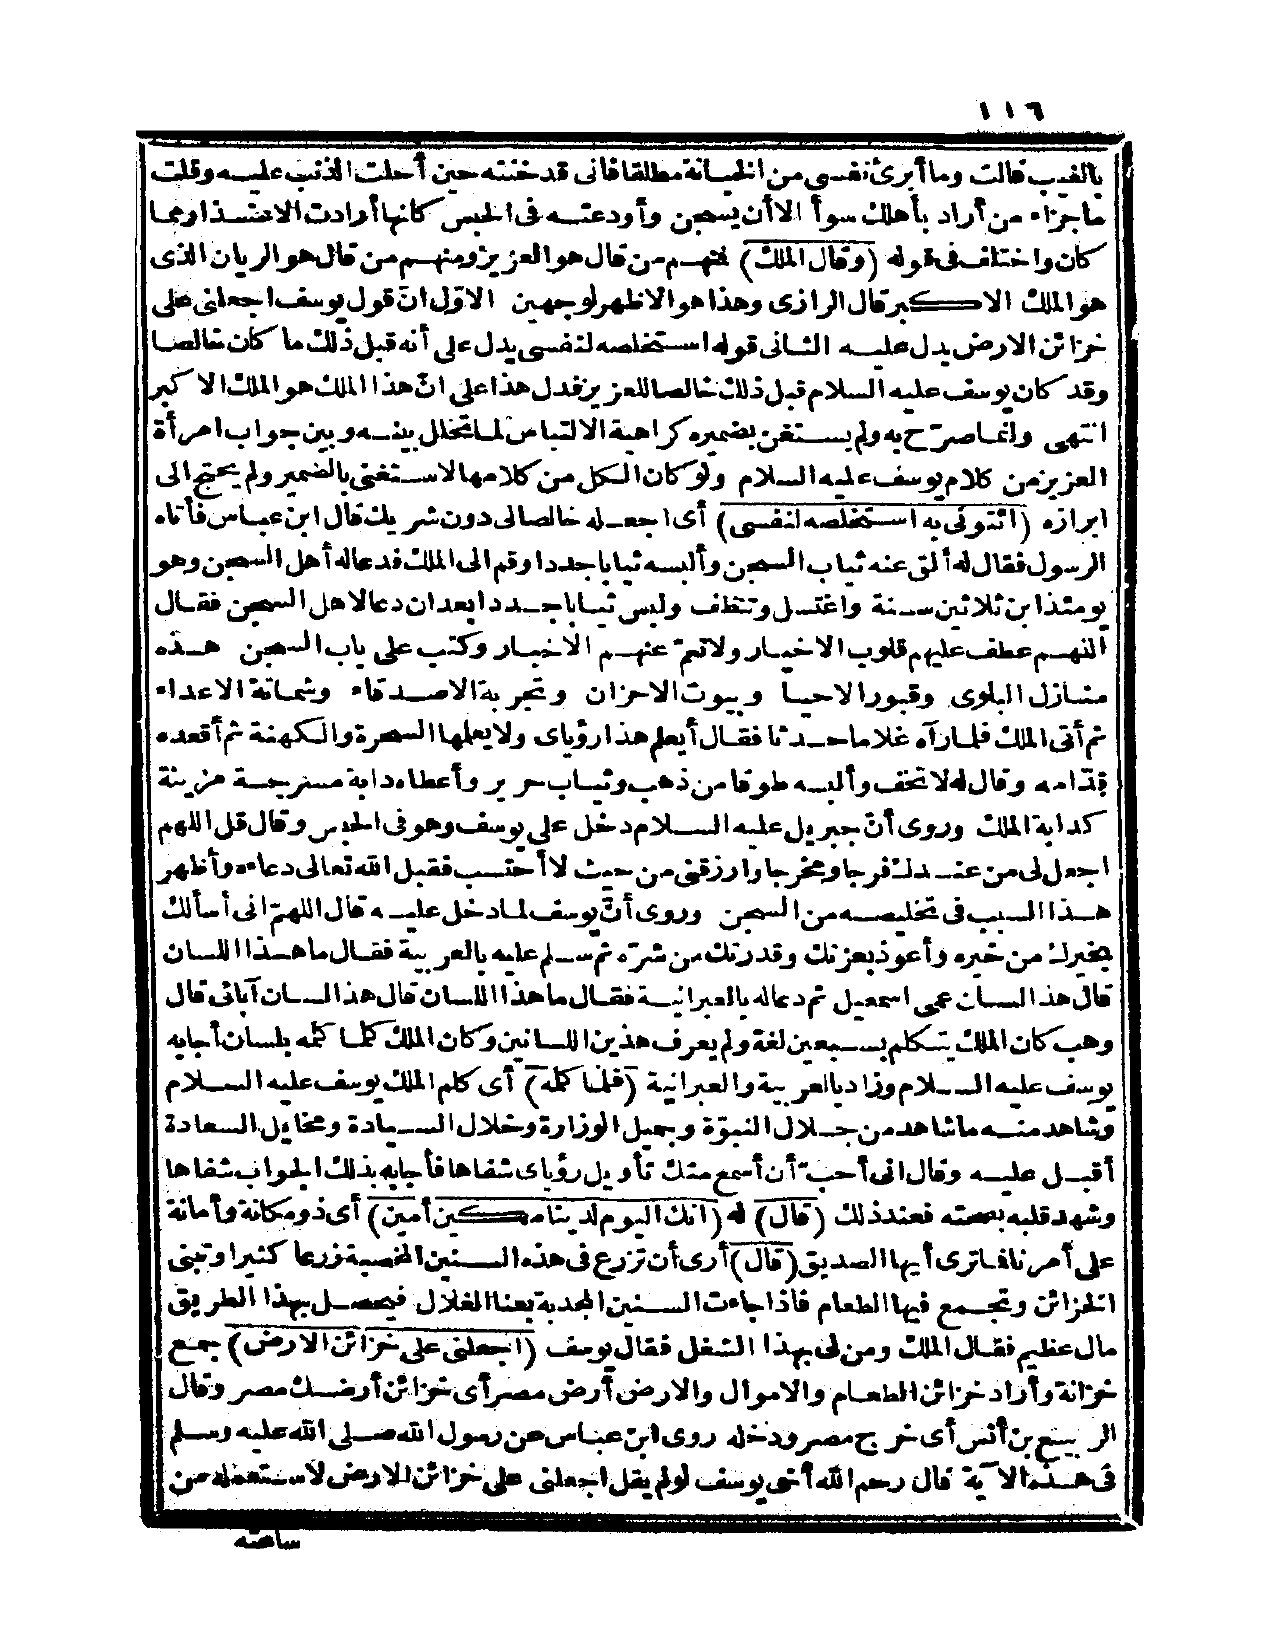 ١١٦
بالغيب قالت وما أبرئ نفسى من الخيانة مطلقا فانى قد خنته حين أحلت الذنب عليه وقلت
ماجزاء من أراد بأهلك سوأ الا أن يسجن وأودعته فى الحبس كأنها أرادت الاعتذار مما
كان واختلف فى قوله (وقال الملك) فمنهم من قال هو العزيز ومنهم من قال هو الريان الذى
هو الملك الاكبر قال الرازى وهذا هو الاظهر لوجهين الاوّل انّ قول يوسف اجعلنى على
خزائن الارض يدل عليه الثانى قوله استخلصه لنفسى يدل على أنه قبل ذلك ما كان خالصا
وقد كان يوسف عليه السلام قبل ذلك خالصا للعزيز فدل هذا على انّ هذا الملك هو الملك الاكبر
انتهى وانما صرّح به ولم يستغن بضميره كراهية الالتباس لما تخلل بينه وبين جواب امرأة
العزيز من كلام يوسف عليه السلام ولو كان الكل من كلامها لاستغنى بالضمير ولم يحتج الى
ابرازه (ائتونى به استخلصه لنفسى) أى اجعله خالصا لى دون شريك قال ابن عباس فأتاه
الرسول فقال له ألق عنه ثياب السجن وألبسه ثيابا جددا وقم الى الملك فدعا له أهل السجن وهو
يومئذ ابن ثلاثين سنة واغتسل وتنظف ولبس ثيابا جددا بعد ان دعا لاهل السجن فقال
اللهم عطف عليهم قلوب الاخيار ولا تعمّ عنهم الاخبار وكتب على باب السجن هذه
منازل البلوى وقبور الاحيا وبيوت الاحزان وتجربة الاصدقاء وشماتة الاعداء
ثم أتى الملك فلما رآه غلاما حدثا فقال أيعلم هذا رؤياى ولا يعلمها السحرة والكهنة ثم أقعده
قدّامه وقال له لا تخف وألبسه طوقا من ذهب وثياب حرير وأعطاه دابة مسرجة مزينة
كدابة الملك وروى أنّ جبريل عليه السلام دخل على يوسف وهو فى الحبس وقال قل اللهم
اجعل لى من عندك فرجا ومخرجا وارزقنى من حيث لا أحتسب فقبل الله تعالى دعاءه وأظهر
هذا السبب فى تخليصه من السجن وروى أنّ يوسف لما دخل عليه قال اللهمّ انى أسألك
بخيرك من خيره وأعوذ بعزتك وقدرتك من شرّه ثم سلم عليه بالعربية فقال ما هذا اللسان
قال هذا لسان عمى اسمعيل ثم دعا له بالعبرانية فقال ما هذا اللسان قال هذا لسان آبائى قال
وهب كان الملك يتكلم بسبعين لغة ولم يعرف هذين اللسانين وكان الملك كلما كلمه بلسان أجابه
يوسف عليه السلام وزاد بالعربية والعبرانية (فلما كلمه) أى كلم الملك يوسف عليه السلام
وشاهد منه ما شاهد من جلال النبوّة وجميل الوزارة وخلال السيادة ومخايل السعادة
أقبل عليه وقال انى أحبّ أن أسمع منك تأويل رؤياى شفاها فأجابه بذلك الجواب شفاها
وشهد قلبه بصحته فعند ذلك (قال) له (انك اليوم لدينا مكين أمين) أى ذو مكانة وأمانة
على أمرنا فما ترى أيها الصديق (قال) أرى أن تزرع فى هذه السنين المخصبة زرعا كثيرا وتبنى
الخزائن وتجمع فيها الطعام فاذا جاءت السنين المجدبة بعنا الغلال فيحصل بهذا الطريق
مال عظيم فقال الملك ومن لى بهذا الشغل فقال يوسف (اجعلنى على خزائن الارض) جمع
خزانة وأراد خزائن الطعام والاموال والارض أرض مصر أى خزائن أرضك مصر وقال
الربيع بن أنس أى خرج مصر ودخله روى ابن عباس عن رسول الله صلى الله عليه وسلم
فى هذه الآية قال رحم الله أخى يوسف لو لم يقل اجعلنى على خزائن الارض لاستعمله من
ساعته